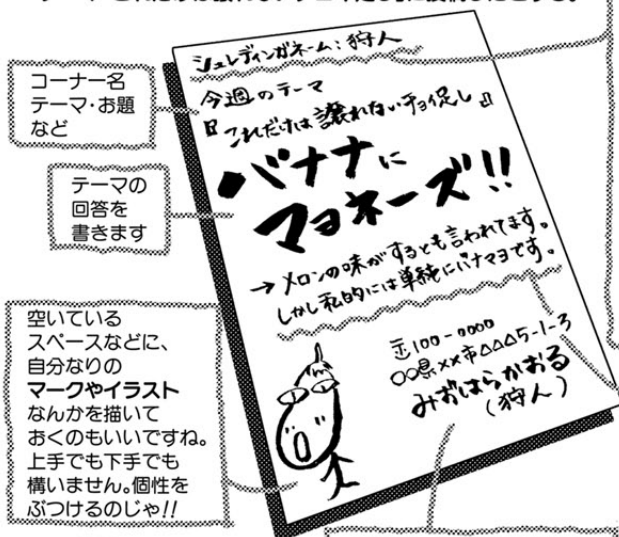 コーナー名
テーマ・お題
など
テーマの
回答を
書きます
空いている
スペースなどに、
自分なりの
マークやイラスト
なんかを描いて
おくのもいいですね。
上手でも下手でも
構いません。個性を
ぶつけるのじゃ!!
シュレディンガネーム:狩人
今週のテーマ
『これだけは譲れないチョイ足し』
バナナに
マヨネーズ!!
→メロンの味がするとも言われてます。
しかし私的には単純にバナマヨです。
〒100-0000
○○県××市△△△5-1-3
みずはらかおる
(狩人)